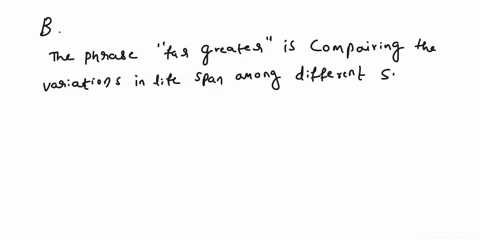 B.
The phrase "far greater" is Compairing the
variations in life span among different s.